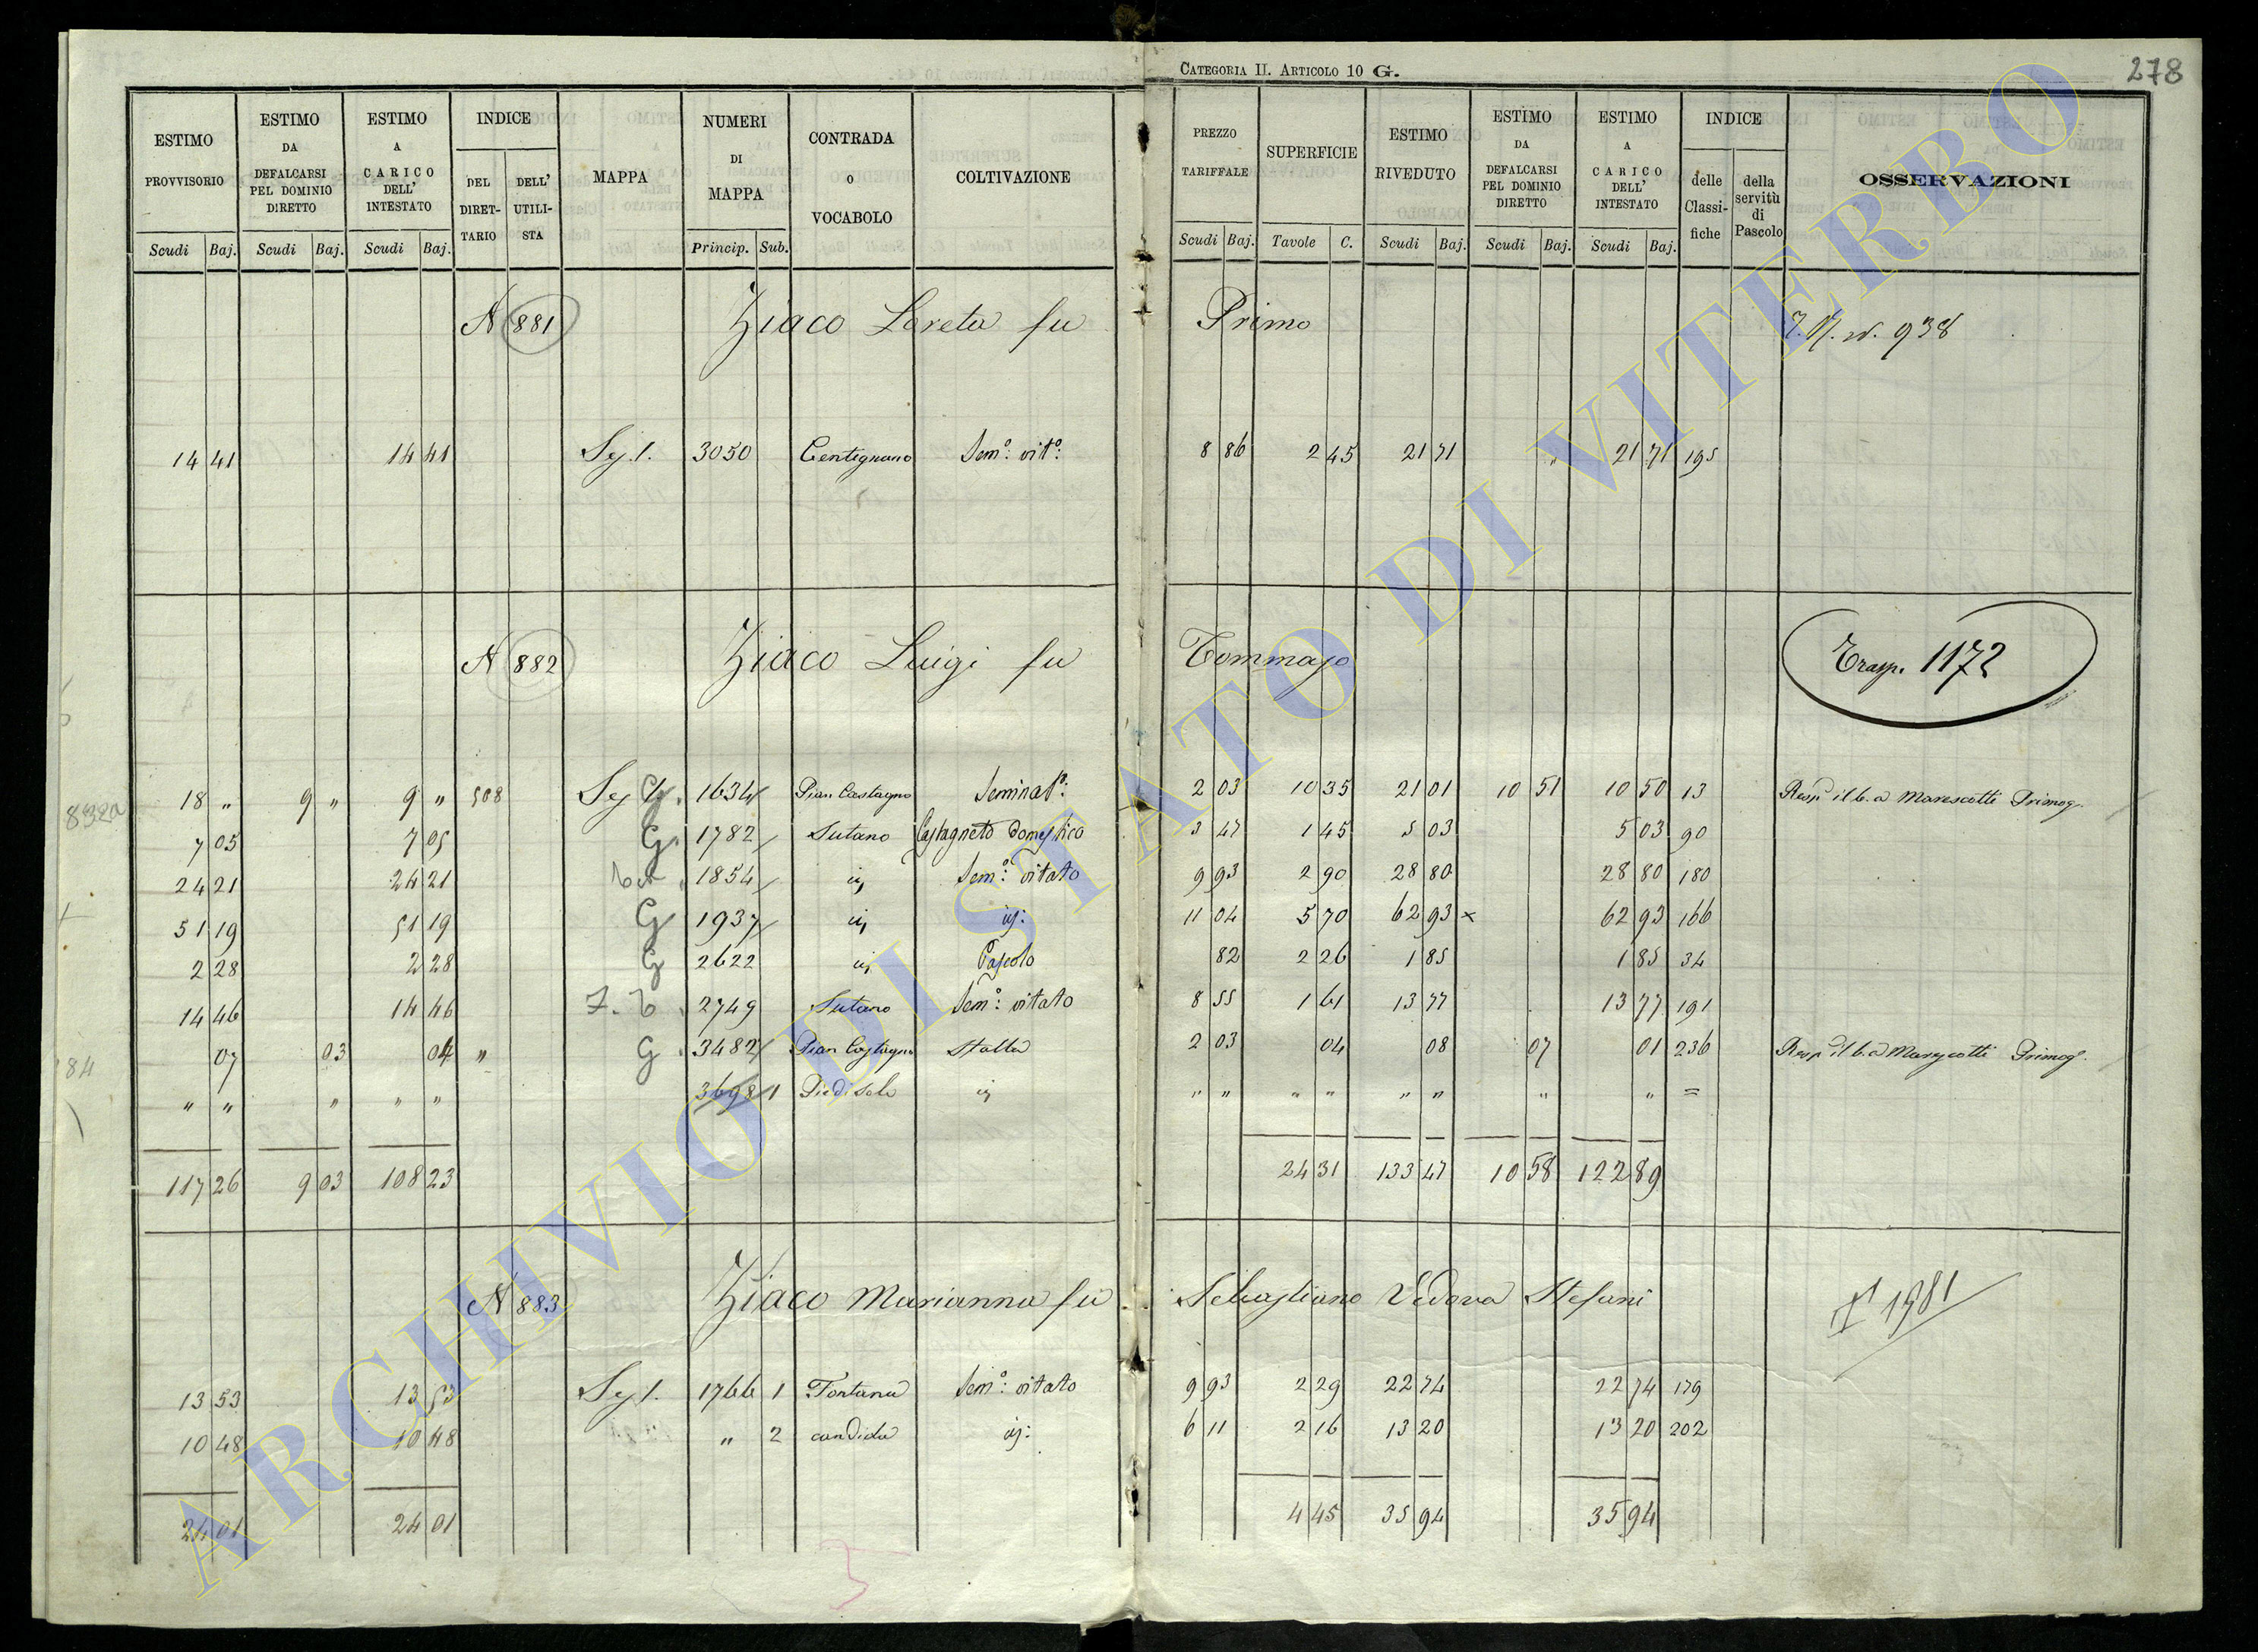 CATEGORIA II. ARTICOLO 10 G.
278
ESTIMO PROVVISORIO Scudi Baj.
ESTIMO DA DEFALCARSI PEL DOMINIO DIRETTO Scudi Baj.
ESTIMO A CARICO DELL' INTESTATO Scudi Baj.
INDICE DEL DIRET-TARIO DELL' UTILI-STA
MAPPA
NUMERI DI MAPPA Princip. Sub.
CONTRADA O VOCABOLO
COLTIVAZIONE
PREZZO TARIFFALE Scudi Baj.
SUPERFICIE Tavole C.
ESTIMO RIVEDUTO Scudi Baj.
ESTIMO DA DEFALCARSI PEL DOMINIO DIRETTO Scudi Baj.
ESTIMO A CARICO DELL' INTESTATO Scudi Baj.
INDICE delle Classi-fiche della servitù di Pascolo
OSSERVAZIONI
N 881 Ziaco Loreta fu Primo 938
14 41 14 41 Sez. 1. 3050 Centignano Sem.º vit.º 8 86 2 45 21 71 " 21 71 195
N 882 Ziaco Luigi fu Tommaso Trasp. 1172
18 " 9 " 9 " 508 Sez G. 1634 Pian Castagno Seminat.º 2 03 10 35 21 01 10 51 10 50 13 Marescotti Primog.
7 05 7 05 G. 1782 Sutano Castagneto domestico 3 47 1 45 5 03 5 03 90
24 21 24 21 1854 ij Sem.º vitato 9 93 2 90 28 80 28 80 180
51 19 51 19 G 1937 ij ij: 11 04 5 70 62 93 x 62 93 166
2 28 2 28 G 2622 ij Pascolo 82 2 26 1 85 1 85 34
14 46 14 46 2749 Sutano Sem.º vitato 8 55 1 61 13 77 13 77 191
07 03 04 " G 3482 Pian Castagno Stalla 2 03 04 08 07 01 236 Marescotti Primog.
" " " " " 3698 1 Piedisole ij " " " " " " " " =
117 26 9 03 108 23 24 31 133 47 10 58 122 89
N 883 Ziaco Marianna fu Sebastiano Vedova Stefani 1981
13 53 13 53 Sez. 1. 1766 1 Fontana Sem.º vitato 9 93 2 29 22 74 22 74 179
10 48 10 48 " 2 candida ij: 6 11 2 16 13 20 13 20 202
24 01 24 01 4 45 35 94 35 94
3
ARCHIVIO DI STATO DI VITERBO